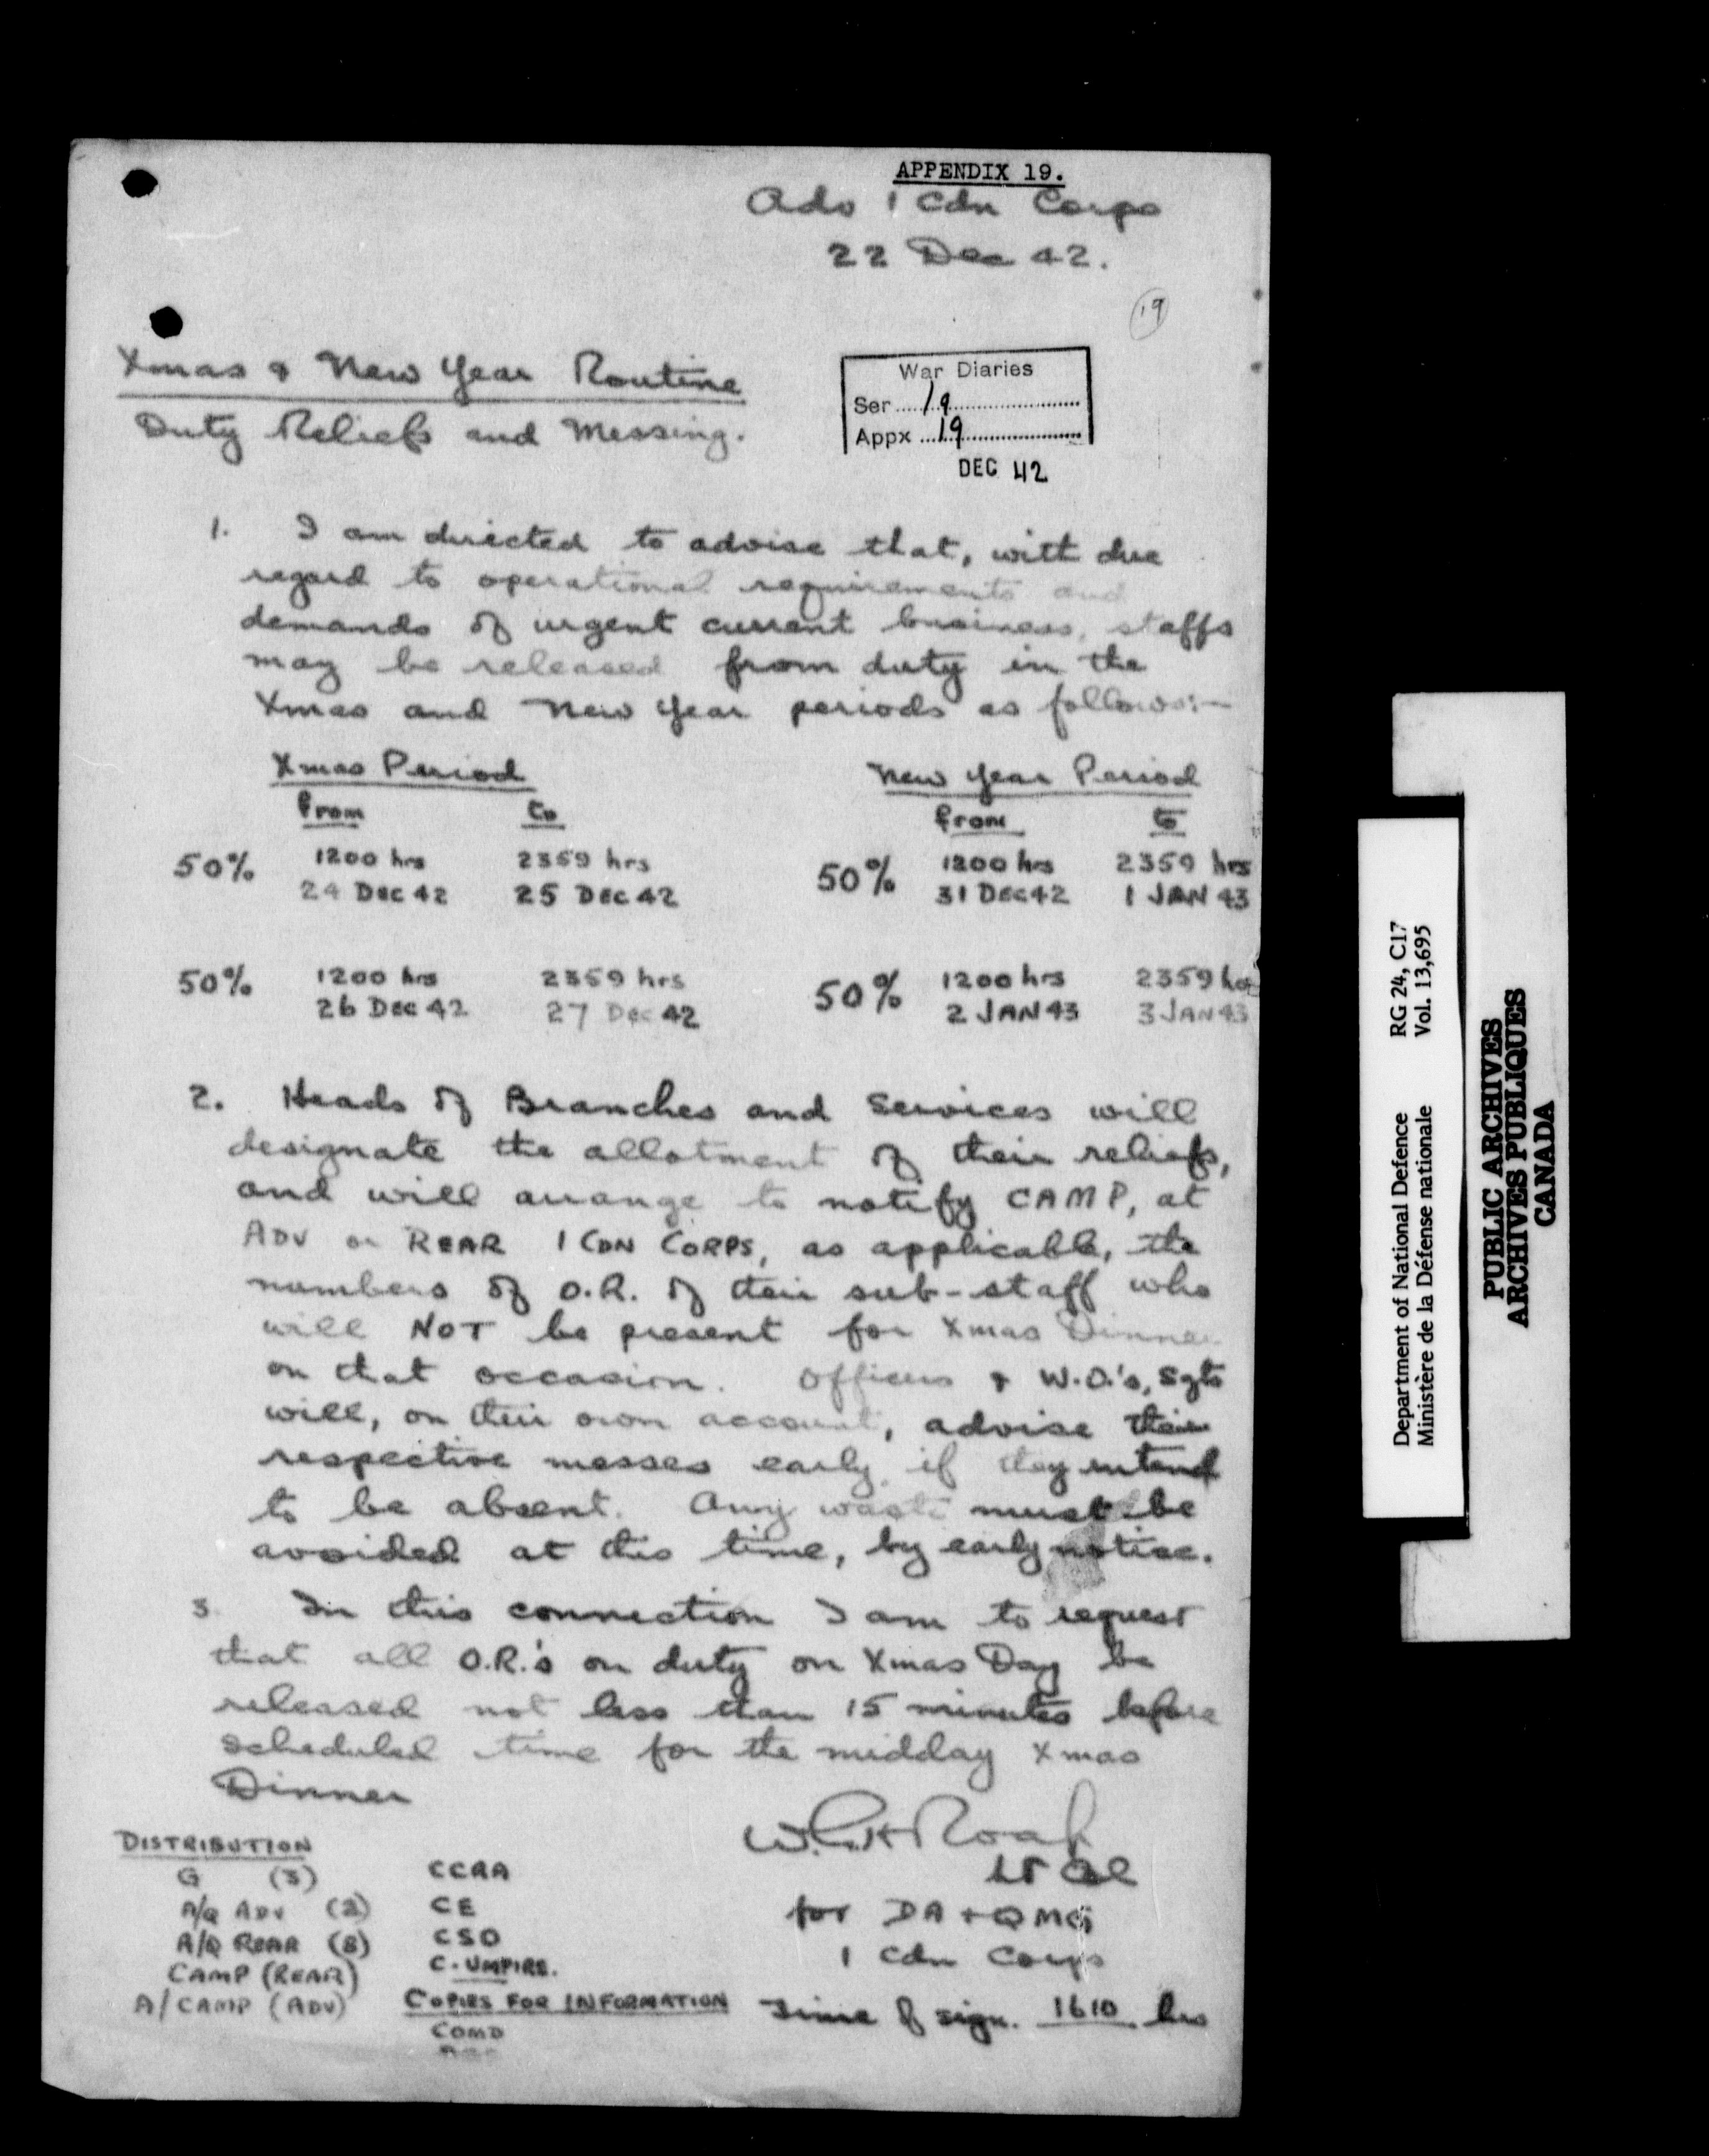 APPENDIX 19.
Adv 1 Cdn Corps
22 Dec 42.
19
Xmas & New Year Routine
Duty Reliefs and Messing.
War Diaries
Ser 19
Appx 19
DEC 42
1. I am directed to advise that, with due
regard to operational requirements and
demands of urgent current business, staffs
may be released from duty in the
Xmas and New Year periods as follows:-
Xmas Period New Year Period
From to From to
50% 1200 hrs 2359 hrs 50% 1200 hrs 2359 hrs
24 Dec 42 25 Dec 42 31 Dec 42 1 JAN 43
50% 1200 hrs 2359 hrs 50% 1200 hrs 2359 hrs
26 Dec 42 27 Dec 42 2 JAN 43 3 JAN 43
2. Heads of Branches and Services will
designate the allotment of their reliefs,
and will arrange to notify CAMP, at
ADV or REAR 1 CDN CORPS, as applicable, the
numbers of O.R. of their sub-staff who
will NOT be present for Xmas Dinner
on that occasion. Officers & W.O.'s, Sgts
will, on their own account, advise their
respective messes early if they intend
to be absent. Any waste must be
avoided at this time, by early notice.
3. In this connection I am to request
that all O.R.'s on duty on Xmas Day be
released not less than 15 minutes before
scheduled time for the midday Xmas
Dinner
DISTRIBUTION
G (3) CCRA
A/Q ADV (2) CE
A/Q REAR (8) CSO
CAMP (REAR) C. UMPIRE.
A/CAMP (ADV) COPIES FOR INFORMATION
COMD
Roaf
Lt Col
for DA + QMG
1 Cdn Corps
Time of sign. 1610 hrs
Department of National Defence RG 24, C17
Ministère de la Défense nationale Vol. 13,695
PUBLIC ARCHIVES
ARCHIVES PUBLIQUES
CANADA